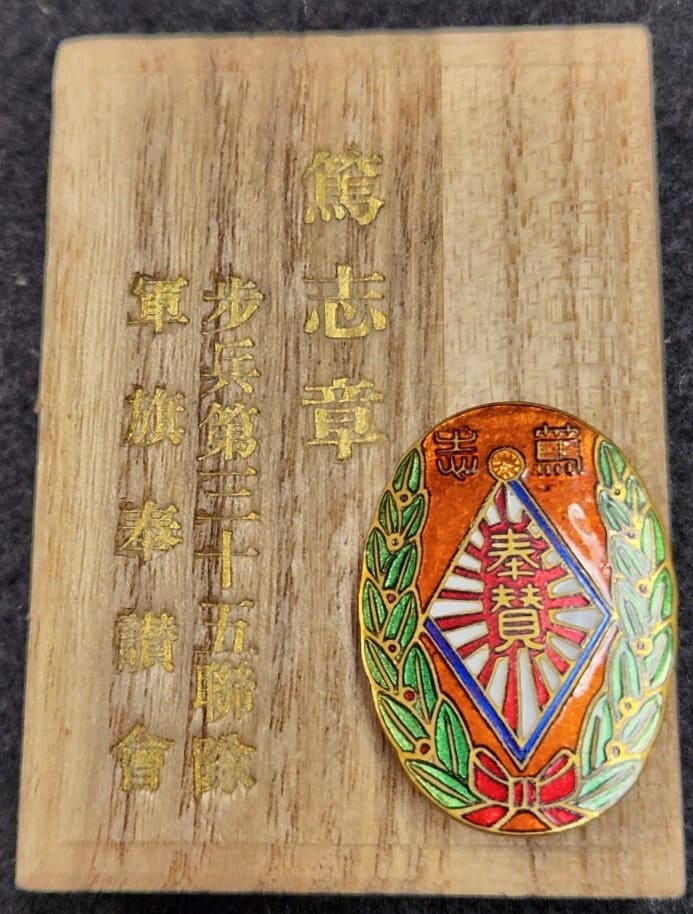 篤志章
歩兵第三十五聯隊
軍旗奉讃會
篤志
奉賛